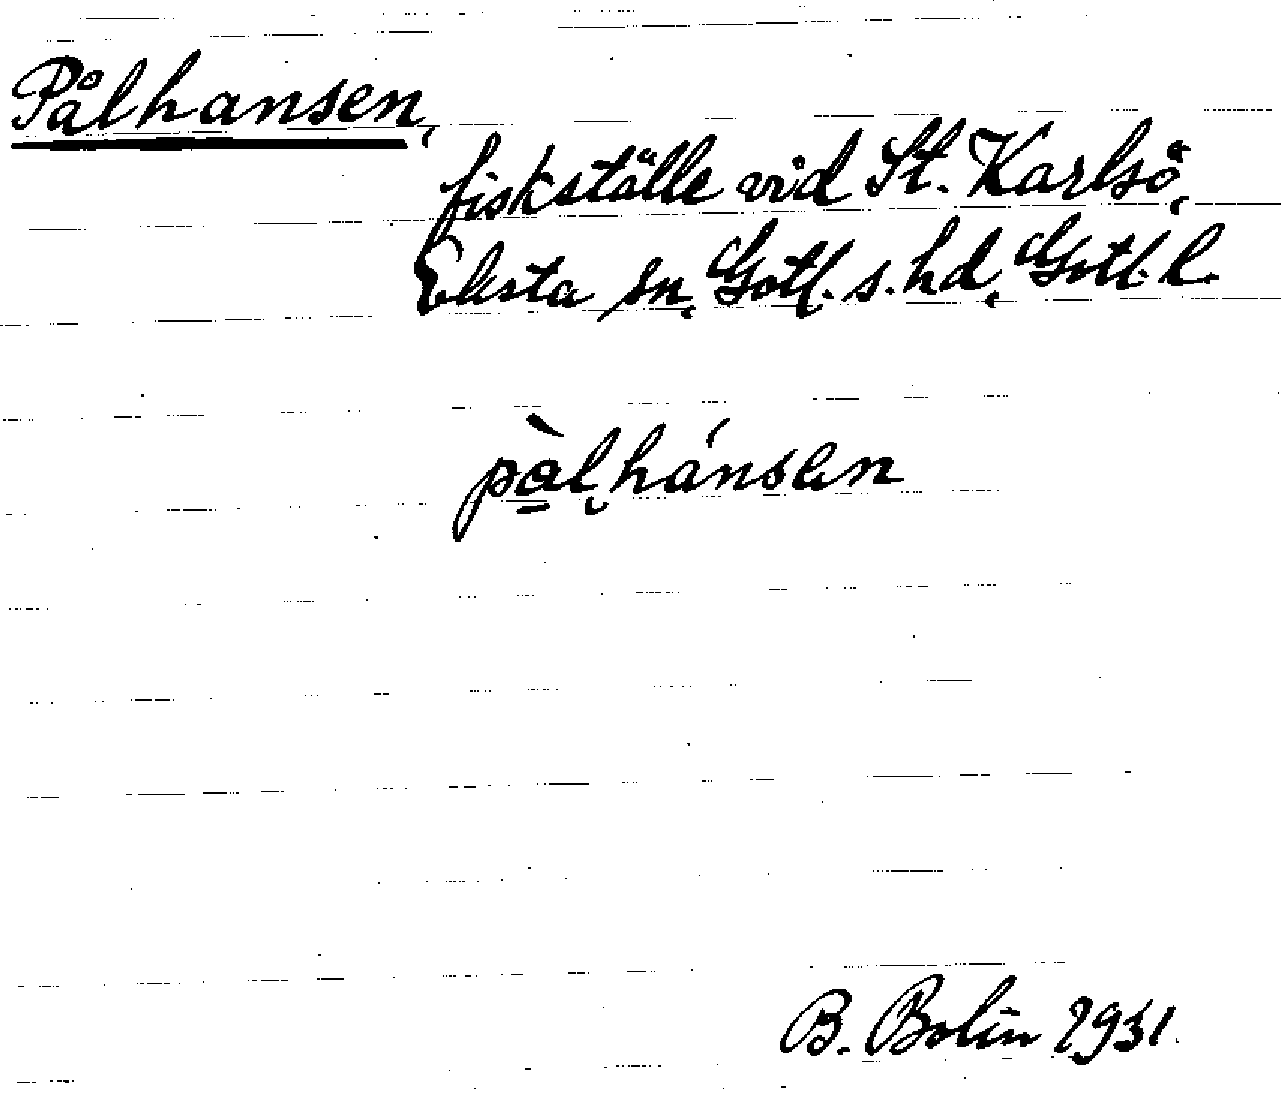 Pålhansen,
fiskställe vid St. Karlsö,
Eksta sn, Gotl. s. hd, Gotl. l.
pàl̯hánsen
B. Bolin 1931.